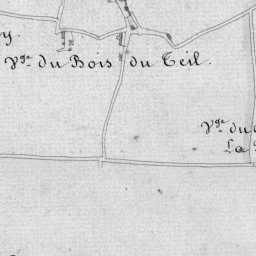 y.
Vge du Bois du Teil.
Vge du
La